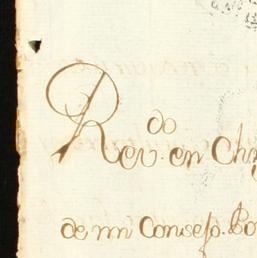 Rev.do en Chr
de mi Consejo. Po